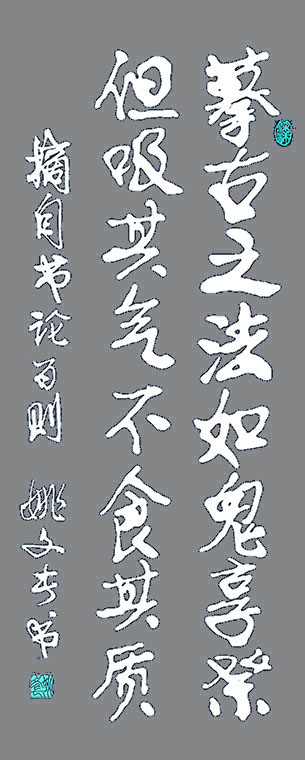 摹古之法如鬼享祭
但吸其气不食其质
摘自书论百则 姚文书